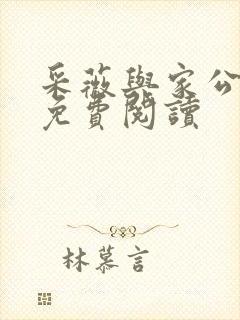 采薇與家公
免費閱讀
林慕言